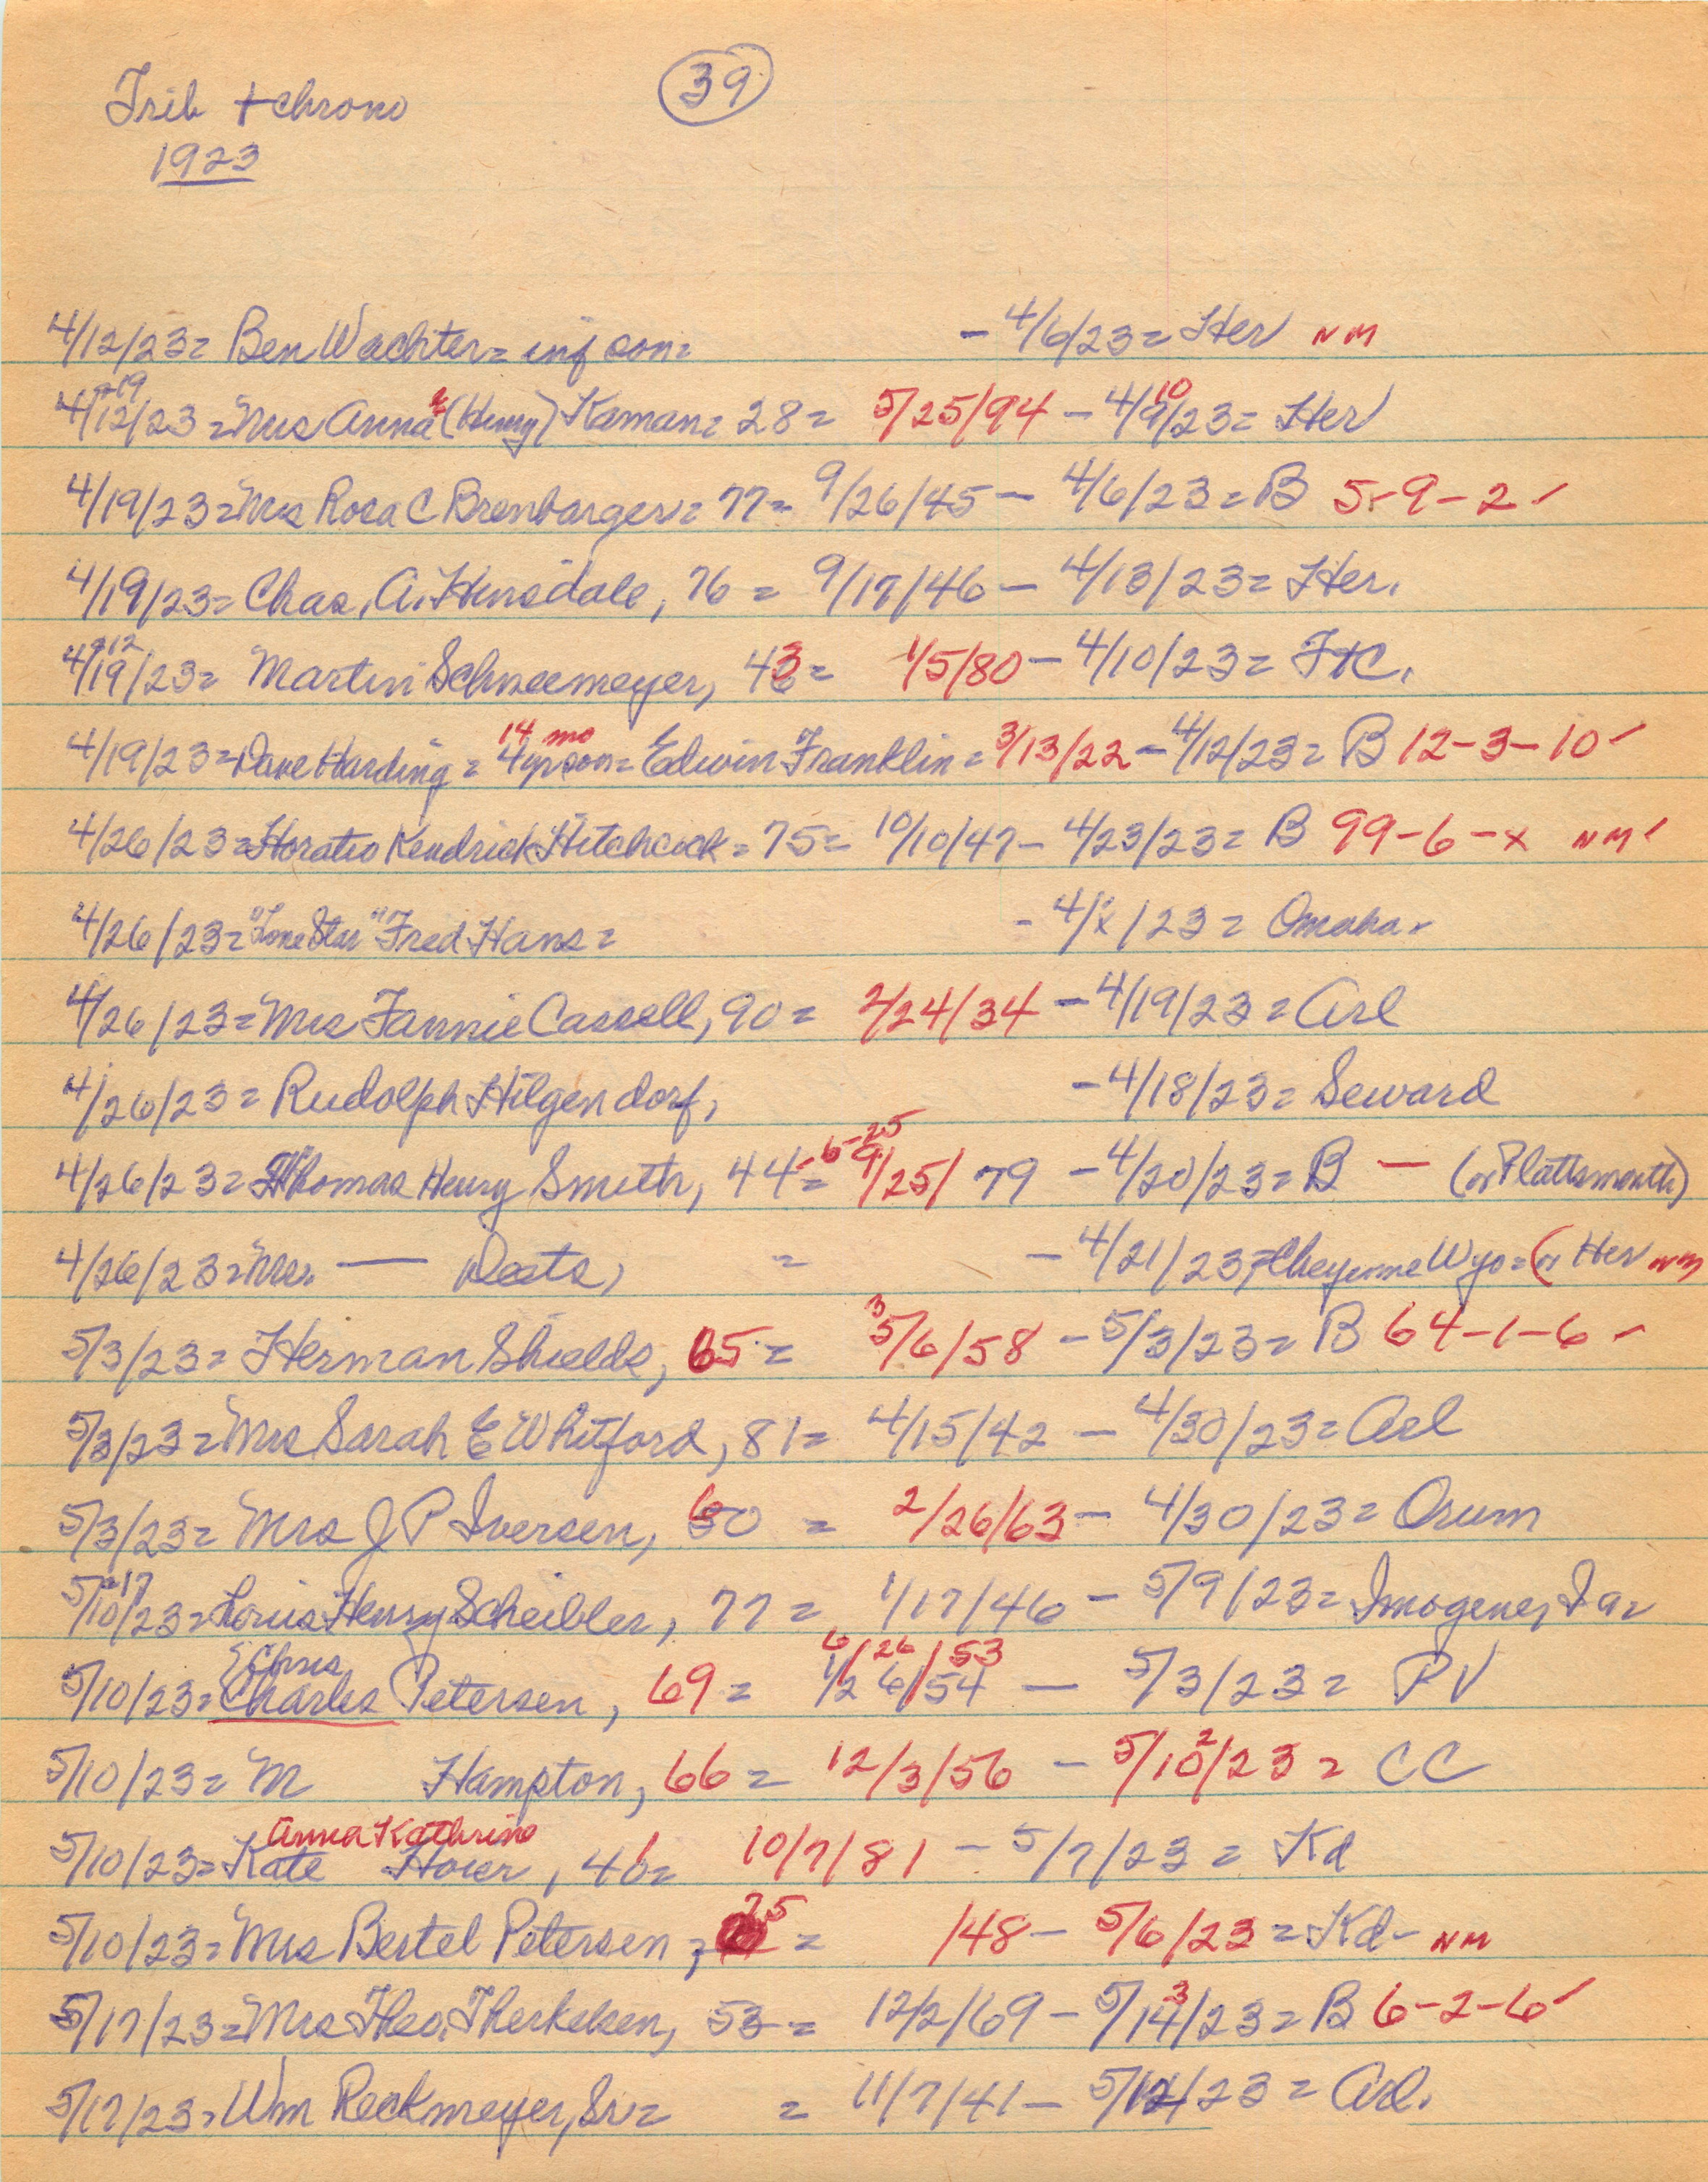 Trib + Chrono
39
1923
4/12/23= Ben Wachter= inf son= - 4/6/23= Her NM
4/12/23 =Mrs Anna (Henry) Kaman= 28= 5/25/94 - 4/9/23= Her
&19 10
4/19/23=Mrs Rosa C Brenbarger= 77= 9/26/45 - 4/6/23=B 5-9-2 ✓
4/19/23= Chas. A. Hinsdale, 76 = 9/17/46 - 4/13/23= Her.
&12
4/19/23= Martin Schneemeyer, 43= 1/5/80 - 4/10/23= FtC.
14 mo
4/19/23=Dave Harding= 4yr son= Edwin Franklin= 3/13/22 - 4/12/23= B 12-3-10 ✓
4/26/23=Horatio Kendrick Hitchcock= 75= 10/10/47 - 4/23/23= B 99-6-x NM ✓
4/26/23="Lone Star" Fred Hans= - 4/x/23= Omaha.
4/26/23=Mrs Fannie Cassell, 90= 2/24/34 - 4/19/23= Arl
4/26/23= Rudolph Hilgendorf, - 4/18/23= Seward
-6-25
4/26/23= Thomas Henry Smith, 44= 9/25/79 - 4/20/23= B — (or Plattsmouth)
4/26/23=Mrs. — Deets, = - 4/21/23=Cheyenne Wyo= (or Her NM
3
5/3/23= Herman Shields, 65= 5/6/58 - 5/3/23= B 64-1-6 ✓
5/3/23=Mrs Sarah E Whitford, 81= 4/15/42 - 4/30/23= Arl
6
5/3/23= Mrs J P Iversen, 50 = 2/26/63 - 4/30/23= Orum
&17
5/10/23=Louis Henry Scheibler, 77= 1/17/46 - 5/9/23= Imogene, Ia=
Chris 6/26/53
5/10/23=Charles Petersen, 69= 1/26/54 - 5/3/23= PV
2
5/10/23= M Hampton, 66= 12/3/56 - 5/10/23= CC
Anna Kathrine 1
5/10/23=Kate Hoier, 40= 10/7/81 - 5/7/23= Kd
75
5/10/23=Mrs Bertel Petersen, = /48 - 5/6/23= Kd- NM
3
5/17/23=Mrs Theo. Therkelsen, 53= 12/2/69 - 5/14/23= B 6-2-6 ✓
5/17/23=Wm Reckmeyer, Sr= = 11/7/41 - 5/12/23= Arl.